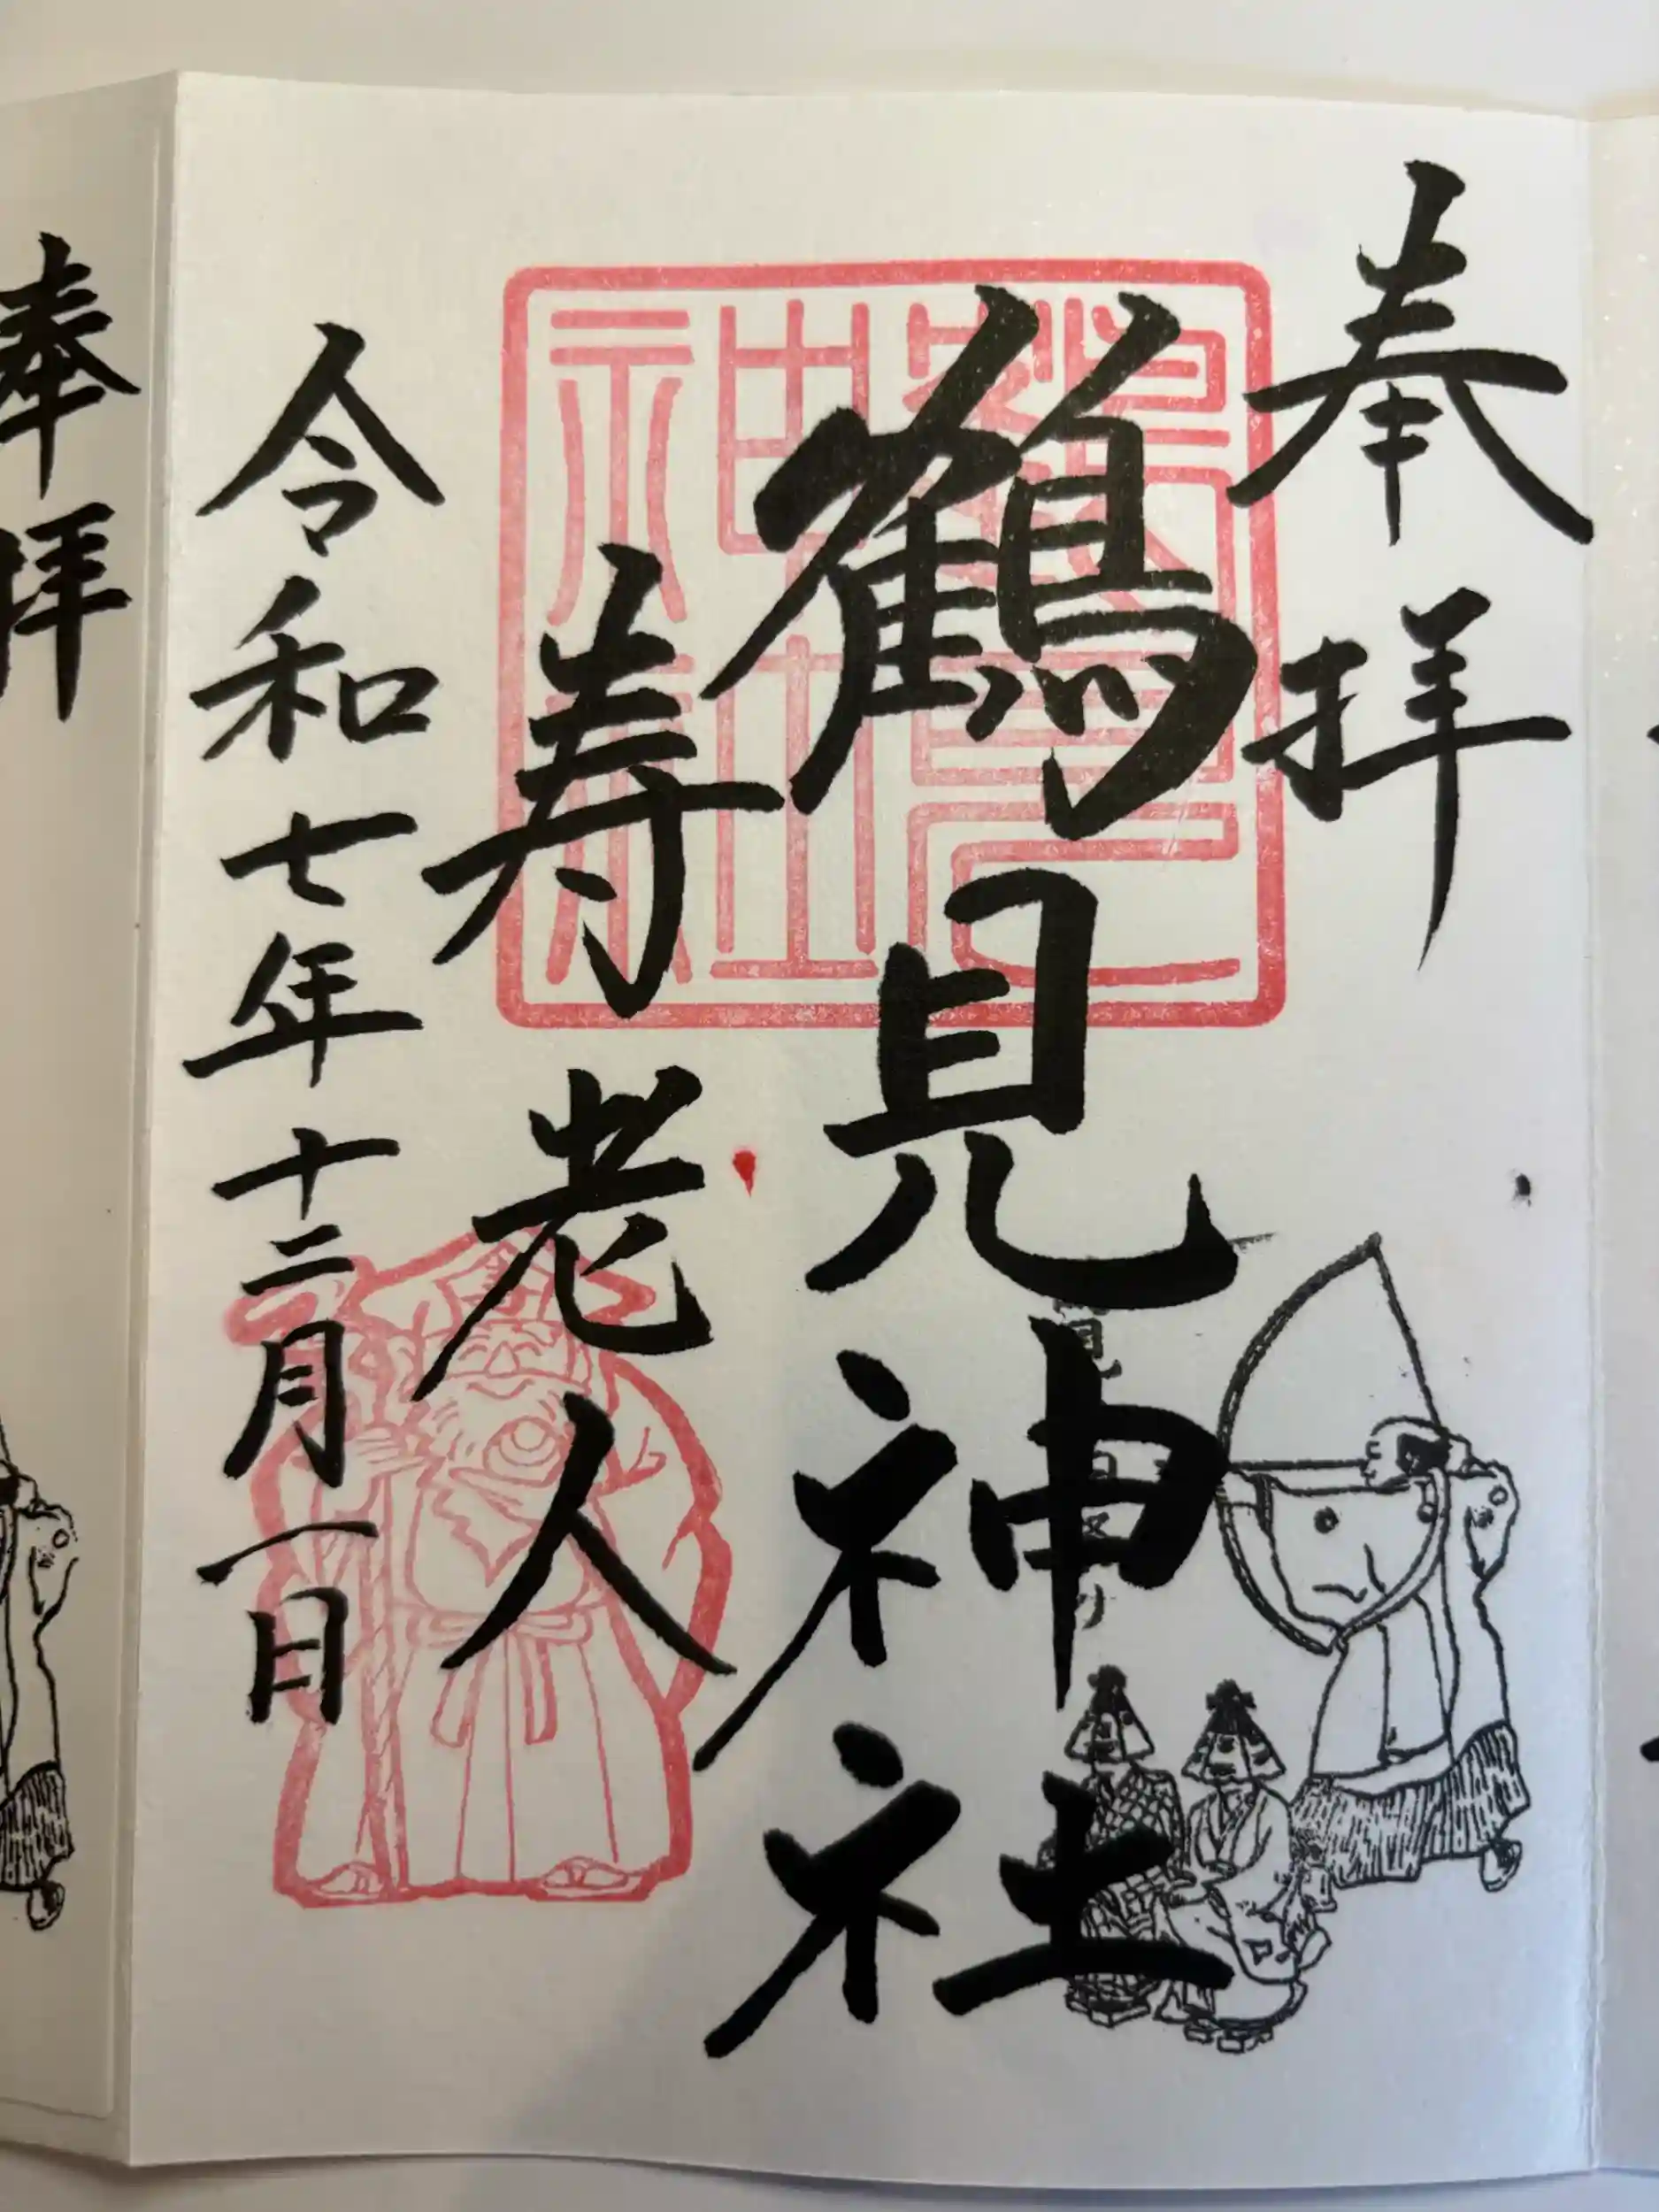 奉拝
鶴見神社
寿老人
令和七年十二月一日
鶴見神社
奉拝